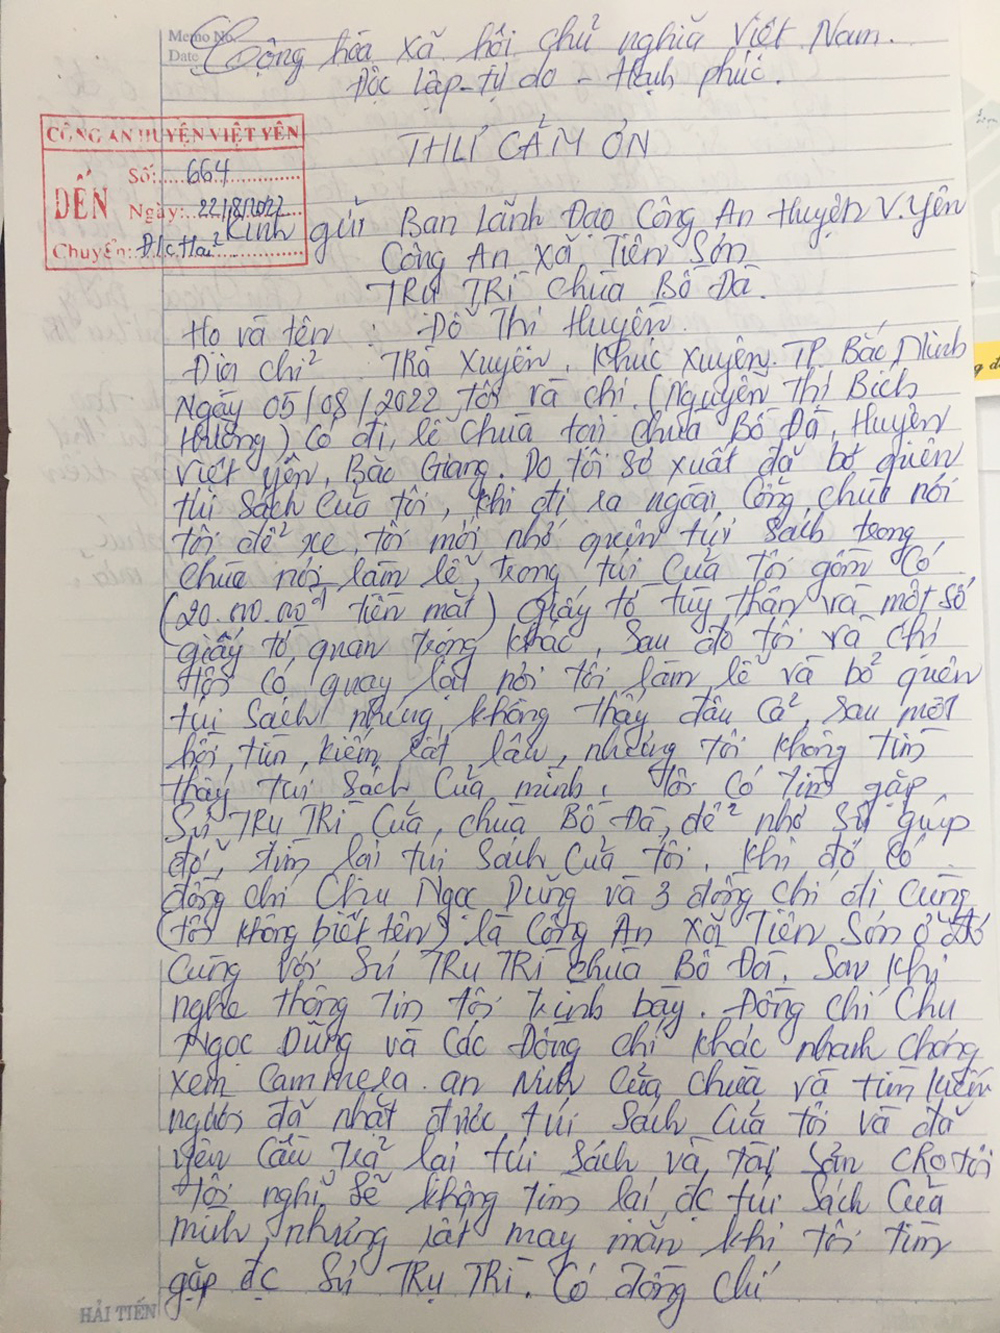 Memo No.
Date
Cộng hòa xã hội chủ nghĩa Việt Nam.
Độc lập - tự do - Hạnh phúc.
THƯ CẢM ƠN
CÔNG AN HUYỆN VIỆT YÊN
ĐẾN
Số: 664
Ngày: 22/8/2022
Chuyển: Đ/c Hà
Kính gửi Ban Lãnh Đạo Công An Huyện V.Yên
Công An Xã Tiên Sơn
TRỤ TRÌ chùa Bổ Đà.
Họ và tên : Đỗ Thị Huyên.
Địa chỉ Trà Xuyên, Khúc Xuyên. TP Bắc Ninh
Ngày 05/08/2022 tôi và chị (Nguyễn Thị Bích
Hường) Có đi lễ chùa tại chùa Bổ Đà, Huyện
Việt Yên, Bắc Giang. Do tôi sơ xuất đã bỏ quên
túi Sách của tôi, khi đi ra ngoài Cổng chùa nơi
tôi để xe, tôi mới nhớ quên túi sách trong
chùa nơi làm lễ, trong túi của tôi gồm có
(20.000.000đ tiền mặt) giấy tờ tùy thân và một số
giấy tờ quan trọng khác, sau đó tôi và chị
tôi có quay lại nơi tôi làm lễ và bỏ quên
túi sách nhưng không thấy đâu cả, sau một
hồi tìm kiếm rất lâu, nhưng tôi không tìm
thấy túi sách của mình, tôi có tìm gặp
Sư TRỤ TRÌ Của chùa Bổ Đà, để nhờ Sư giúp
đỡ, tìm lại túi sách của tôi. Khi đó có
đồng chí Chu Ngọc Dũng và 3 đồng chí đi cùng
(tôi không biết tên) là Công An Xã Tiên Sơn ở đó
Cùng với Sư TRỤ TRÌ chùa Bổ Đà. Sau khi
nghe thông tin tôi trình bày. Đồng chí Chu
Ngọc Dũng và các Đồng chí khác nhanh chóng
xem Cammera an ninh của chùa và tìm kiếm
người đã nhặt được túi sách của tôi và đã
yêu cầu trả lại túi sách và tài sản cho tôi
tôi nghĩ sẽ không tìm lại đc túi sách của
mình, nhưng rất may mắn khi tôi tìm
gặp đc Sư TRỤ TRÌ. Có đồng chí
HẢI TIẾN